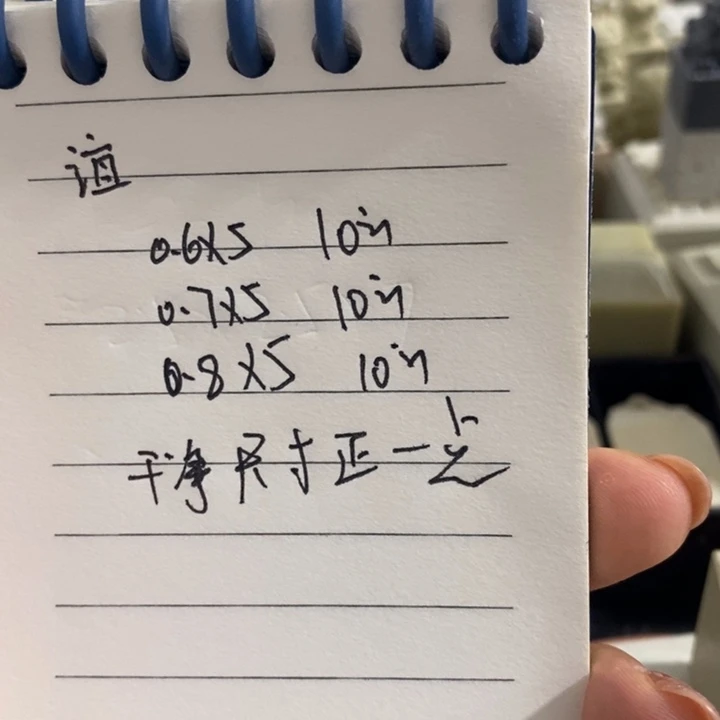 谊
0.6X5 10
0.7X5 10
0.8X5 10
干净尺寸正一点